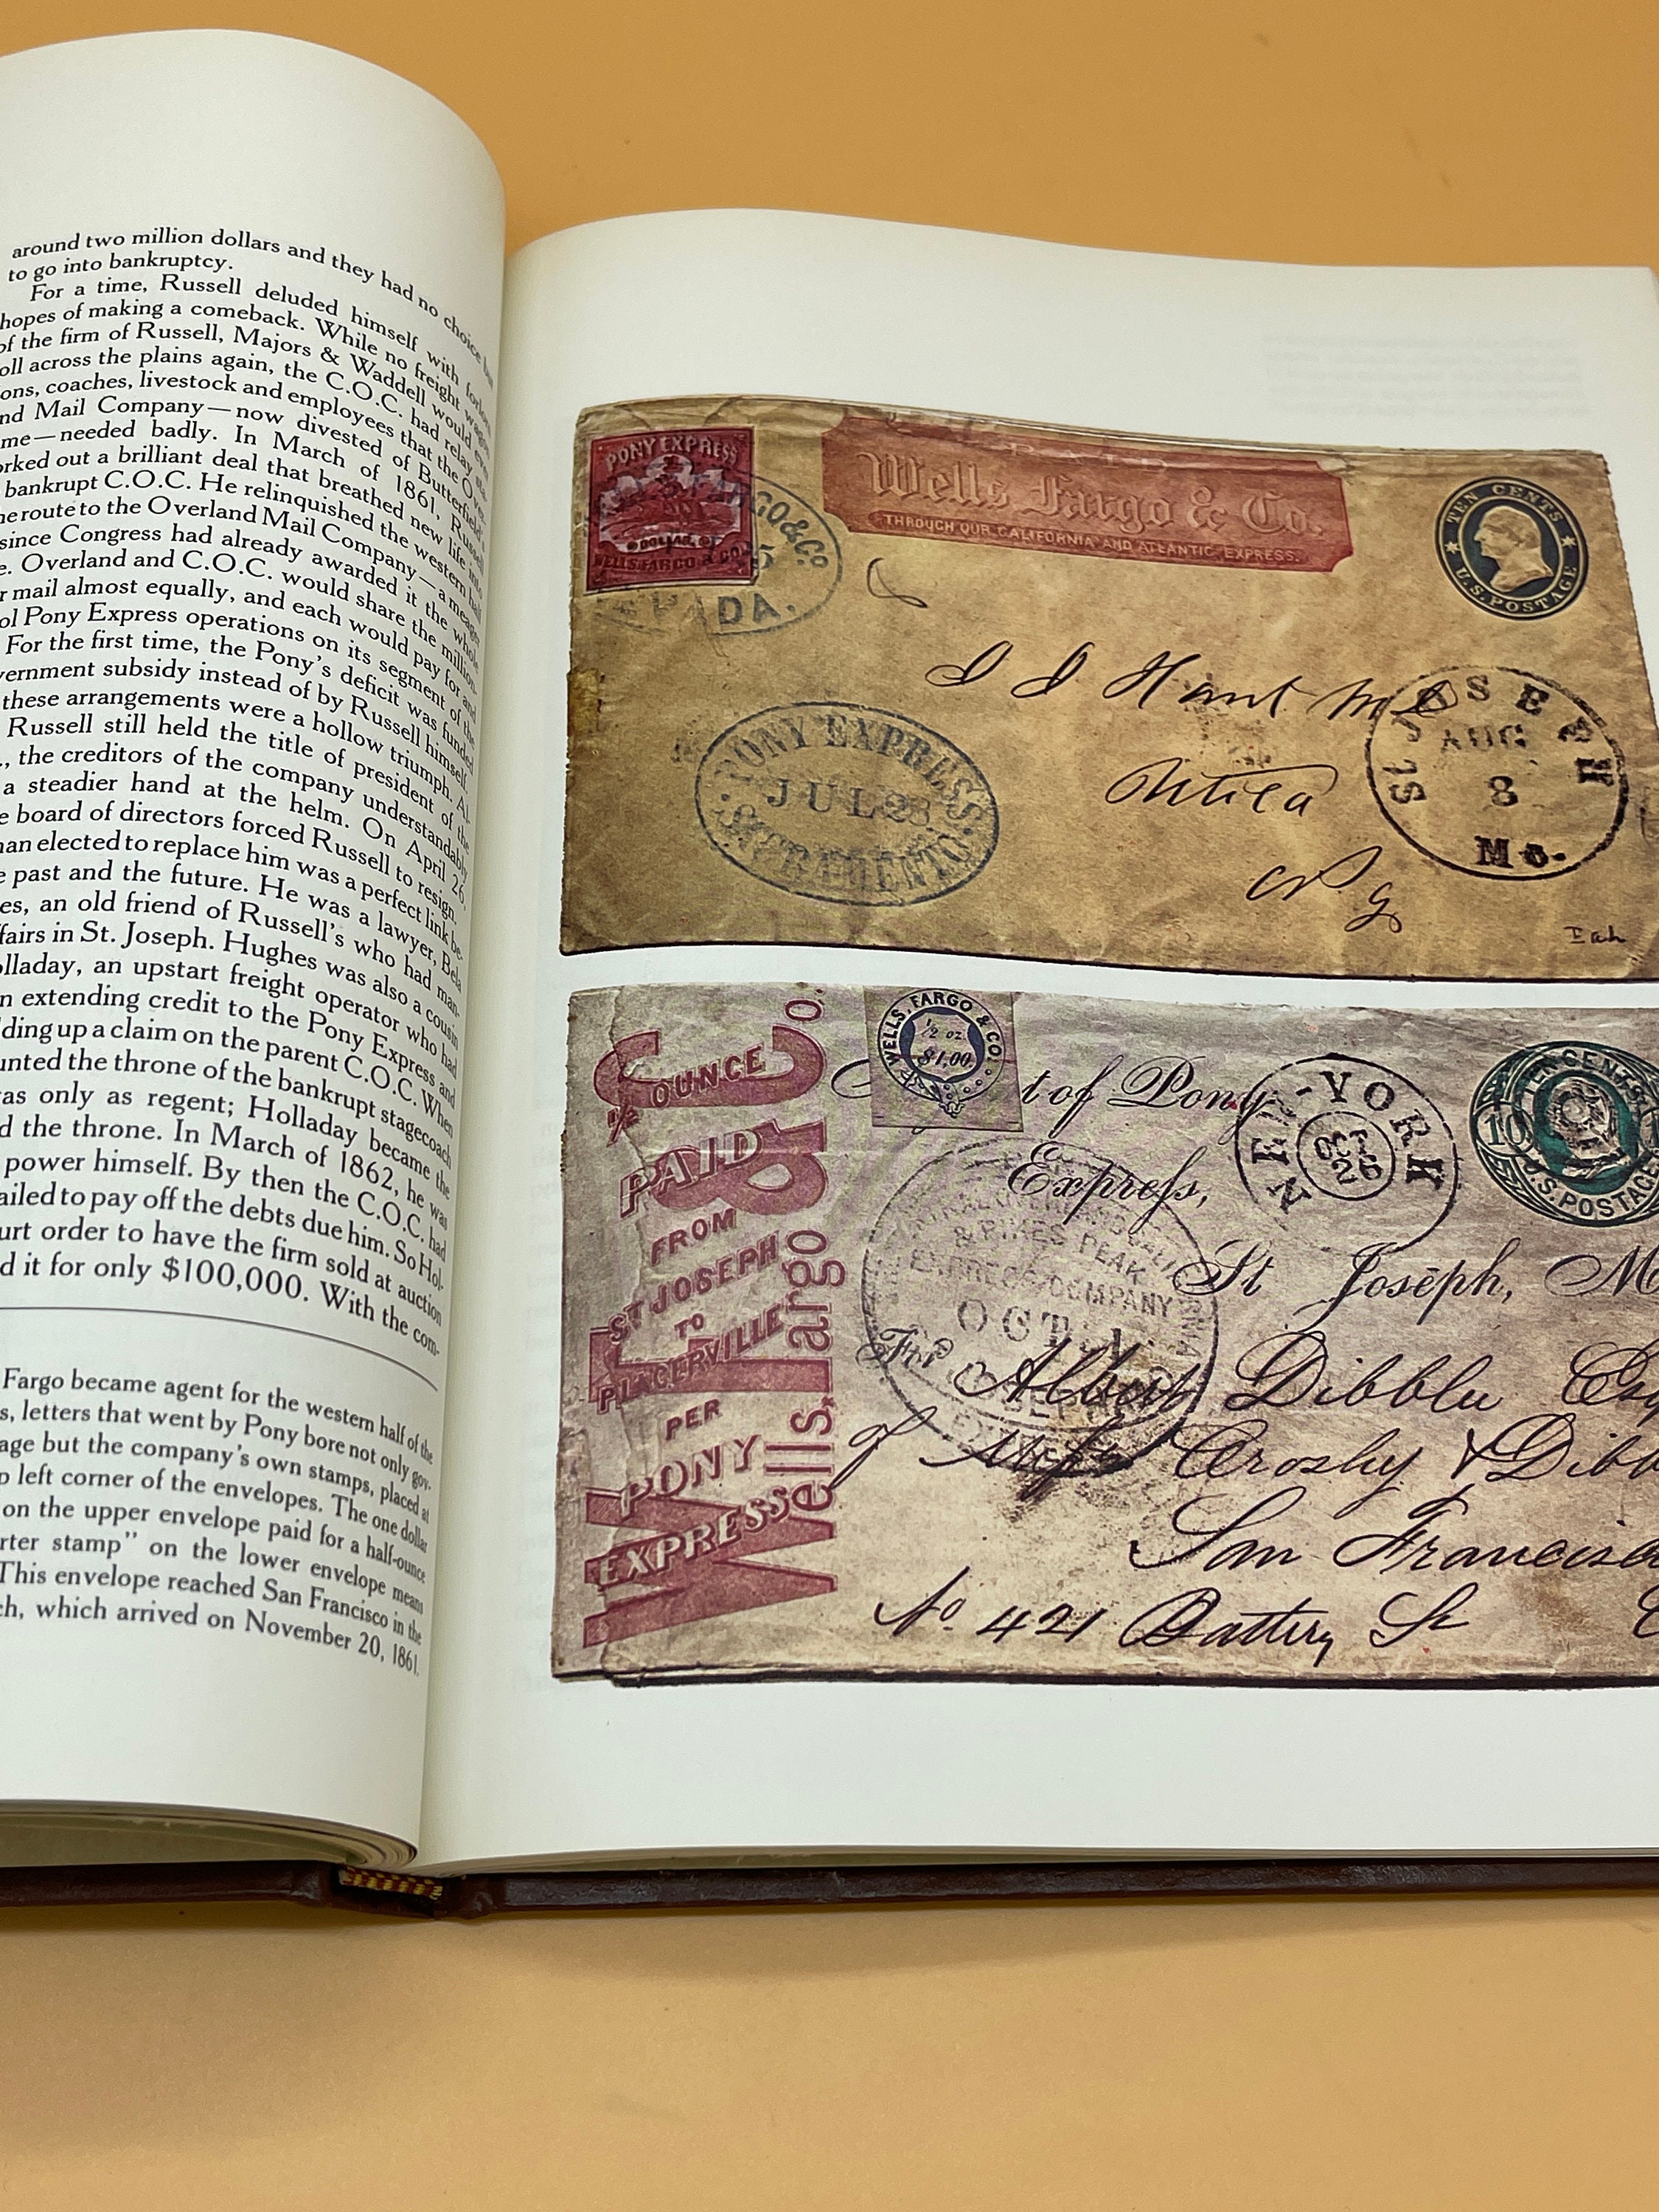 around two million dollars and they had no choice but
to go into bankruptcy.
For a time, Russell deluded himself with forlorn
hopes of making a comeback. While no freight wagons
of the firm of Russell, Majors & Waddell would ever
oll across the plains again, the C.O.C. had relay sta-
ons, coaches, livestock and employees that the Over-
nd Mail Company—now divested of Butterfield's
me—needed badly. In March of 1861, Russell
orked out a brilliant deal that breathed new life into
bankrupt C.O.C. He relinquished the western half
he route to the Overland Mail Company—a meager
since Congress had already awarded it the whole
e. Overland and C.O.C. would share the million-
r mail almost equally, and each would pay for and
ol Pony Express operations on its segment of the
For the first time, the Pony's deficit was funded
vernment subsidy instead of by Russell himself.
these arrangements were a hollow triumph. Al-
Russell still held the title of president of the
., the creditors of the company understandably
a steadier hand at the helm. On April 26,
e board of directors forced Russell to resign.
nan elected to replace him was a perfect link be-
e past and the future. He was a lawyer, Bela
es, an old friend of Russell's who had man-
ffairs in St. Joseph. Hughes was also a cousin
olladay, an upstart freight operator who had
n extending credit to the Pony Express and
lding up a claim on the parent C.O.C. When
unted the throne of the bankrupt stagecoach
as only as regent; Holladay became the
d the throne. In March of 1862, he was
power himself. By then the C.O.C. had
ailed to pay off the debts due him. So Hol-
urt order to have the firm sold at auction
d it for only $100,000. With the com-
Fargo became agent for the western half of the
s, letters that went by Pony bore not only gov-
age but the company's own stamps, placed at
p left corner of the envelopes. The one dollar
on the upper envelope paid for a half-ounce
rter stamp" on the lower envelope means
This envelope reached San Francisco in the
ch, which arrived on November 20, 1861.
PONY EXPRESS
DOLLAR
WELLS, FARGO & CO.
GO & CO
DA.
PAID
Wells Fargo & Co.
THROUGH OUR CALIFORNIA AND ATLANTIC EXPRESS.
TEN CENTS
U.S. POSTAGE
Utica
PONY EXPRESS.
JUL 28
SACRAMENTO
ST JOSEPH
AUG
8
Mo.
Wells, Fargo & Co.
½ OUNCE
PAID
FROM
ST JOSEPH
TO
PLACERVILLE
PER
PONY
EXPRESS
WELLS, FARGO & CO.
½ oz.
$1.00
t of Pony
Express,
St Joseph, M
NEW-YORK
OCT
26
TEN CENTS
10
U.S. POSTAGE
CENTRAL OVERLAND CALIFORNIA
& PIKES PEAK
EXPRESS COMPANY
OCT
For
Albert Dibblee Esq
of Messrs Crosby & Dibb
San Francisco
No 421 Battery St